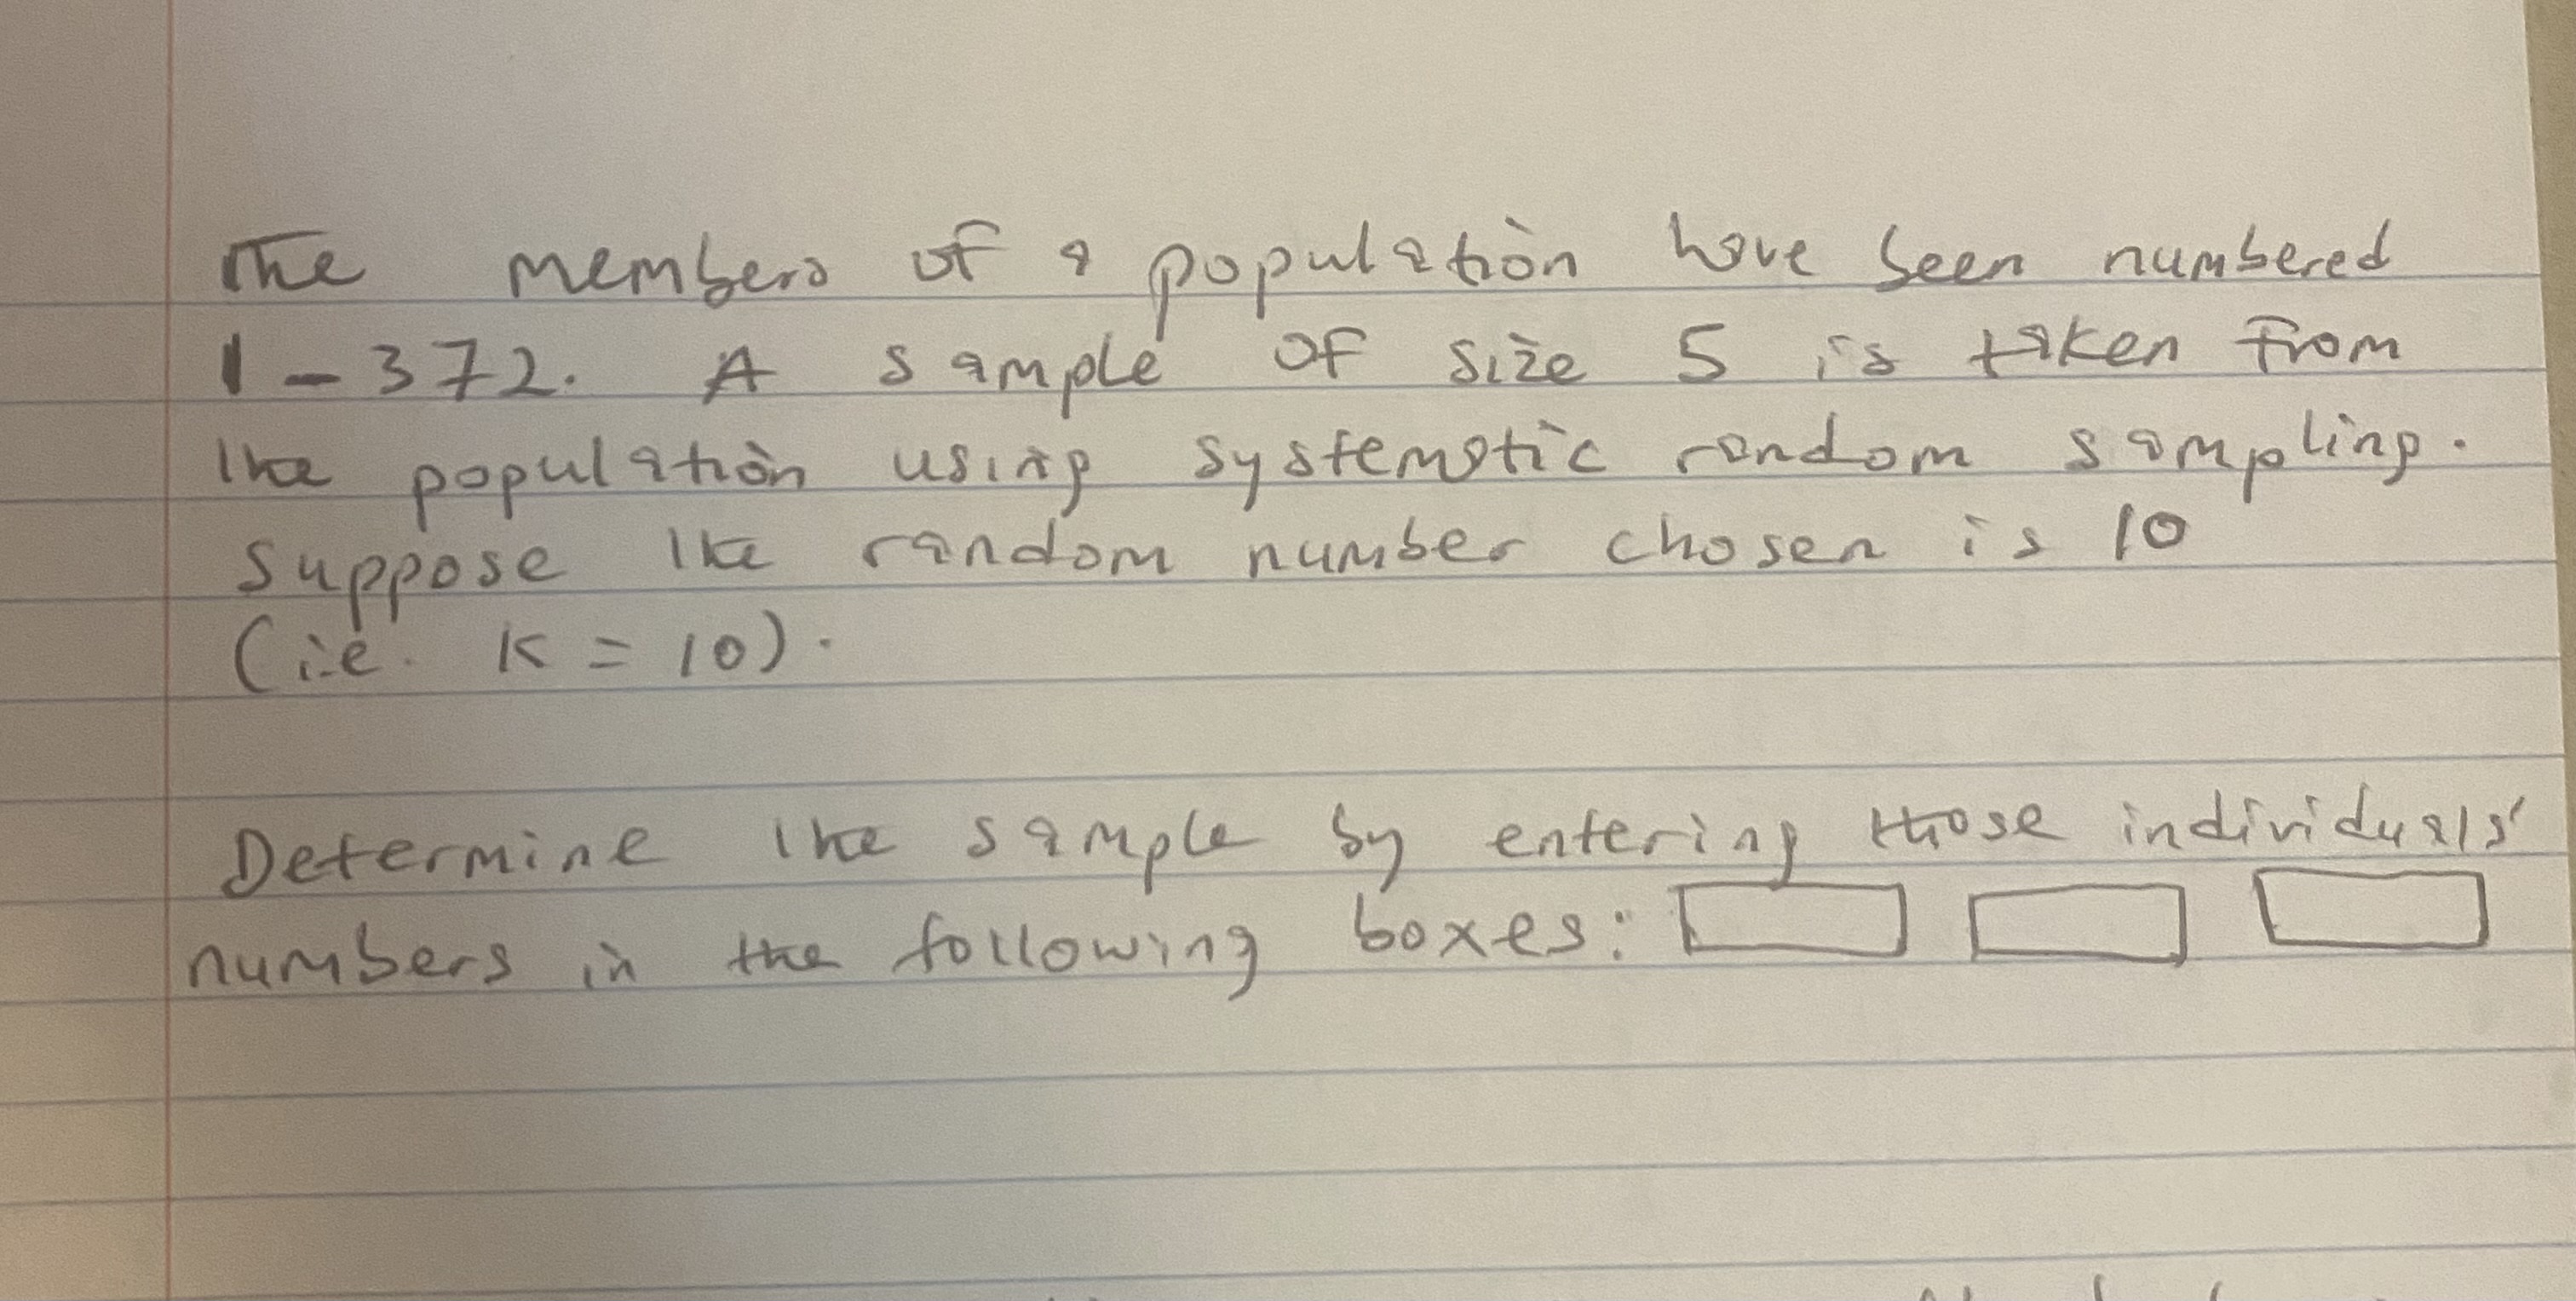 The members of a population have been numbered
1-372. A sample of size 5 is taken from
the population using systematic random sampling.
Suppose the random number chosen is 10
(i.e. K = 10).
Determine the sample by entering those individuals'
numbers in the following boxes: